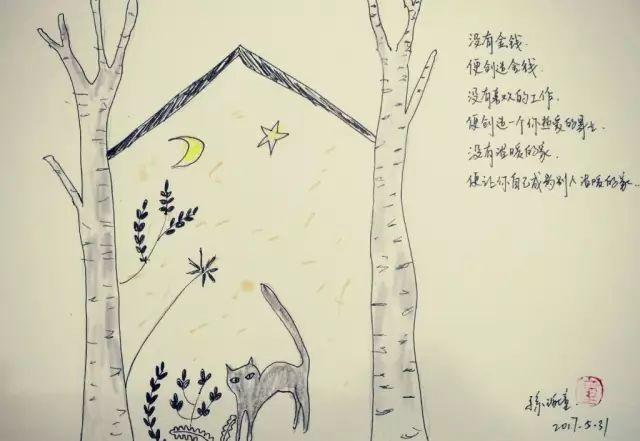 没有金钱.
便创造金钱.
没有喜欢的工作.
便创造一个你热爱的事业.
没有温暖的家.
便让你自己成为别人温暖的家...
孙
2017.5.31